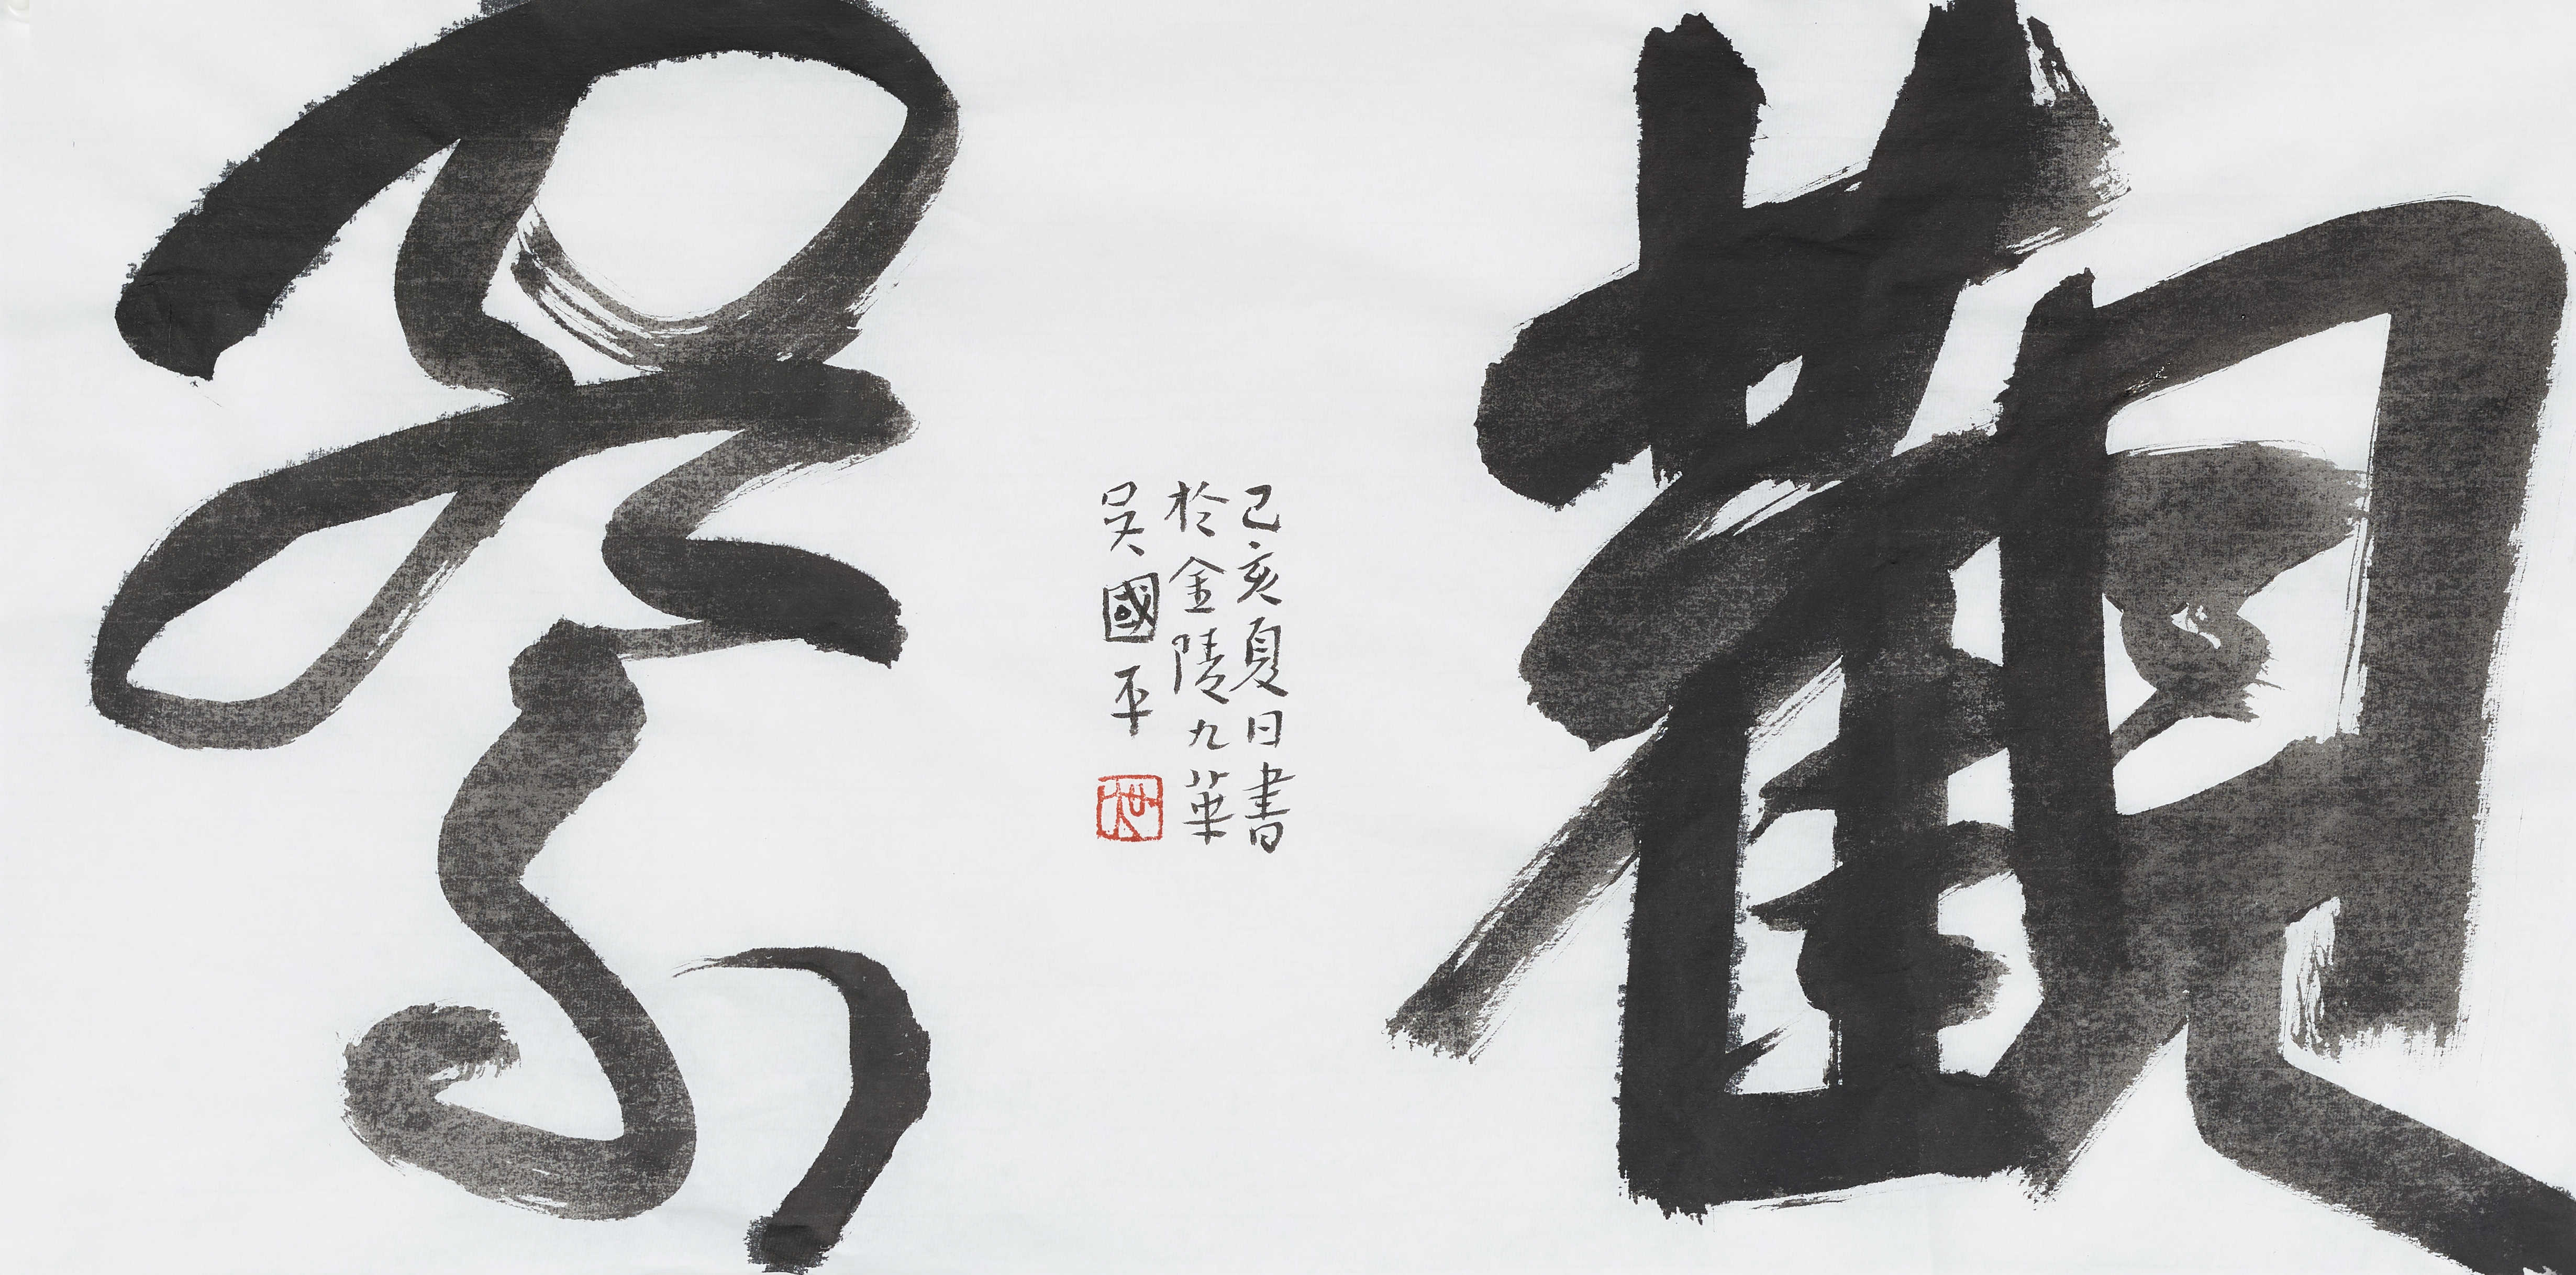 觀象
己亥夏日書
於金陵九華
吳國平